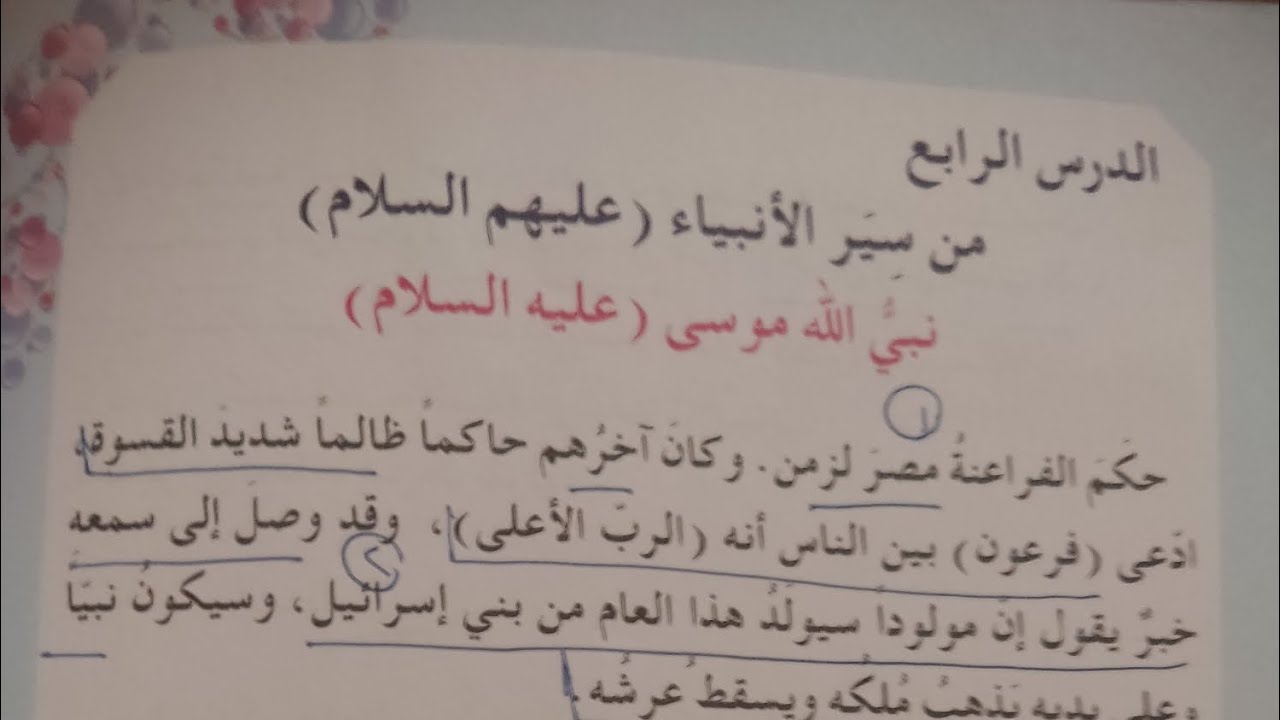 الدرس الرابع
من سِيَر الأنبياء (عليهم السلام)
نبيُّ الله موسى (عليه السلام)
١
حكَمَ الفراعنةُ مصرَ لزمن. وكانَ آخرُهم حاكماً ظالماً شديدَ القسوة.
ادّعى (فرعون) بين الناس أنه (الربّ الأعلى)، وقد وصلَ إلى سمعه
٢
خبرٌ يقول إنّ مولوداً سيولَدُ هذا العام من بني إسرائيل، وسيكونُ نبيّاً
وعلى يديه يَذهبُ مُلكُه ويسقطُ عرشُه.